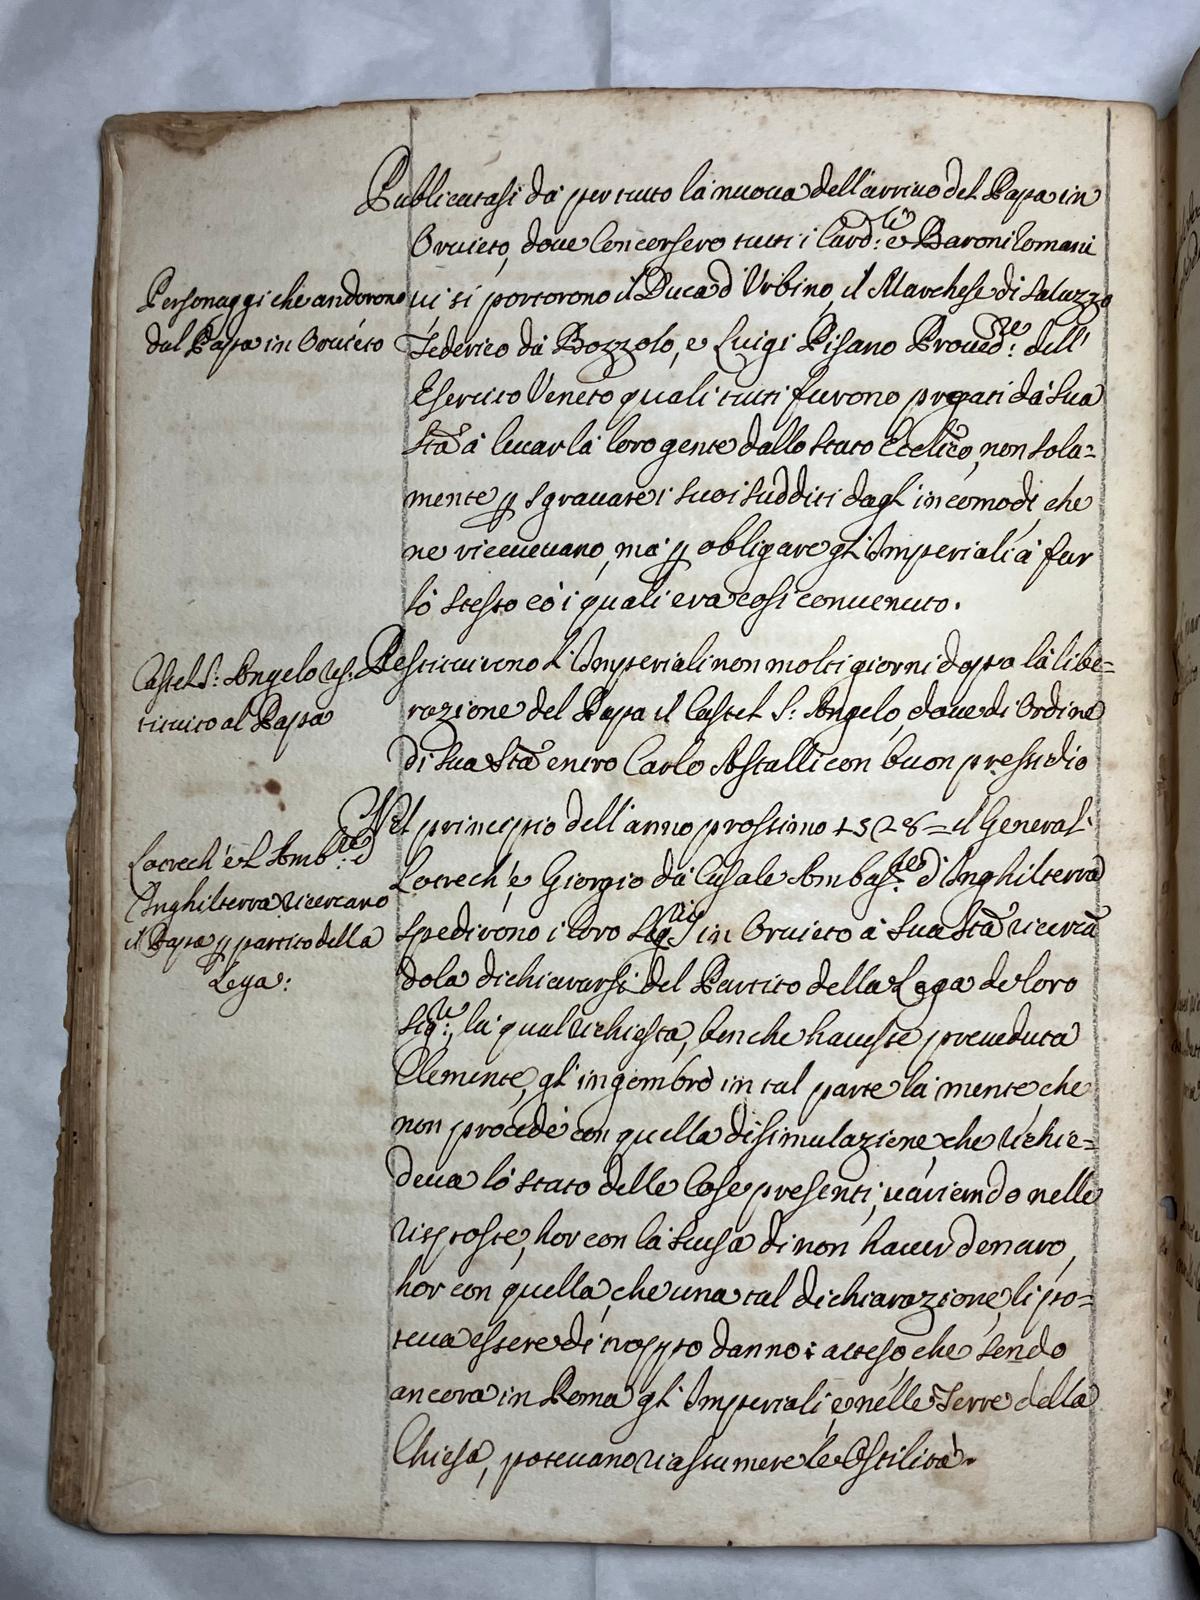 Publicatasi da per tutto la nuova dell'arrivo del Papa in
Orvieto, dove Concorsero tutti i Card:li e Baroni Romani
Personaggi che andorono
dal Papa in Orvieto
vi si portorono il Duca d'Urbino, il Marchese di Saluzzo
Federico da Bozzolo, e Luigi Pisano Proved:re dell'
Esercito Veneto quali tutti furono pregati da Sua
Stà à levar la loro gente dallo Stato Ecclico, non sola=
mente p sgravare i suoi sudditi dagl'incomodi, che
ne ricevevano, mà p obligare gl'Imperiali à far
lo stesso cò i quali era così convenuto.
Castel S: Angelo res:
tituito al Papa
Restituirono l'Imperiali non molti giorni doppo la libe=
razione del Papa il Castel S: Angelo, dove di Ordine
di Sua Stà entro Carlo Astalli con buon presidio
Nel principio dell'anno prossimo 1528= il General
Lotrech è l'Amb:re d'
Inghilterra ricercano
il Papa p partito della
Lega:
Lotrech', e Giorgio da Casale Ambas:re d'Inghilterra
spedirono i loro in Orvieto à Sua Stà ricercā
dola dichiararsi del Partito della Lega de loro
Sig:ri, la qual richiesta, benche havesse preveduta
Clemente, gl'ingombrò in tal parte la mente, che
non procedè con quella disimulazione, che richie=
deva lo stato delle Cose presenti, variando nelle
risposte, hor con la scusa di non haver denaro,
hor con quella, che una tal dichiarazione, li po=
teva essere di troppo danno: atteso che sendo
ancora in Roma gl'Imperiali, e nelle Terre della
Chiesa, potevano riassumere le Ostilità.